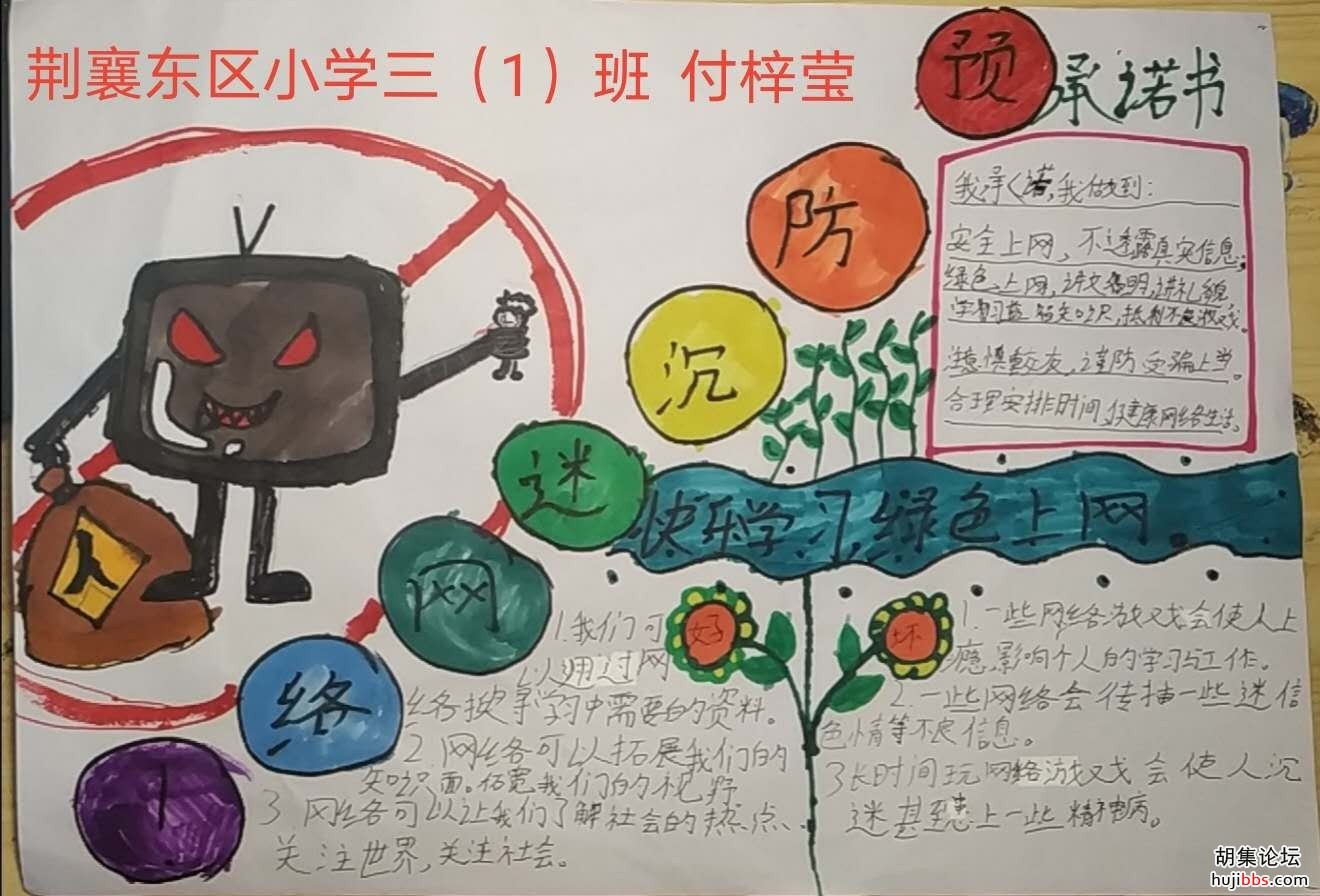 荆襄东区小学三（1）班 付梓莹
预
防
沉
迷
网
络
！
承诺书
我承诺,我做到:
安全上网,不透露真实信息;
绿色上网,讲文明,讲礼貌
注意慎重交友,谨防受骗上当。
合理安排时间,健康网络生活。
快乐学习,绿色上网
好
1.我们可
以通过网
络搜寻学习中需要的资料。
2.网络可以拓展我们的
知识面。拓宽我们的视野
3.网络可以让我们了解社会的热点、
关注世界,关注社会。
坏
1.一些网络游戏会使人上
瘾,影响个人的学习与工作。
2.一些网络会传播一些迷信
色情等不良信息。
3长时间玩网络游戏会使人沉
迷甚至患上一些精神病。
人
胡集论坛
hujibbs.com